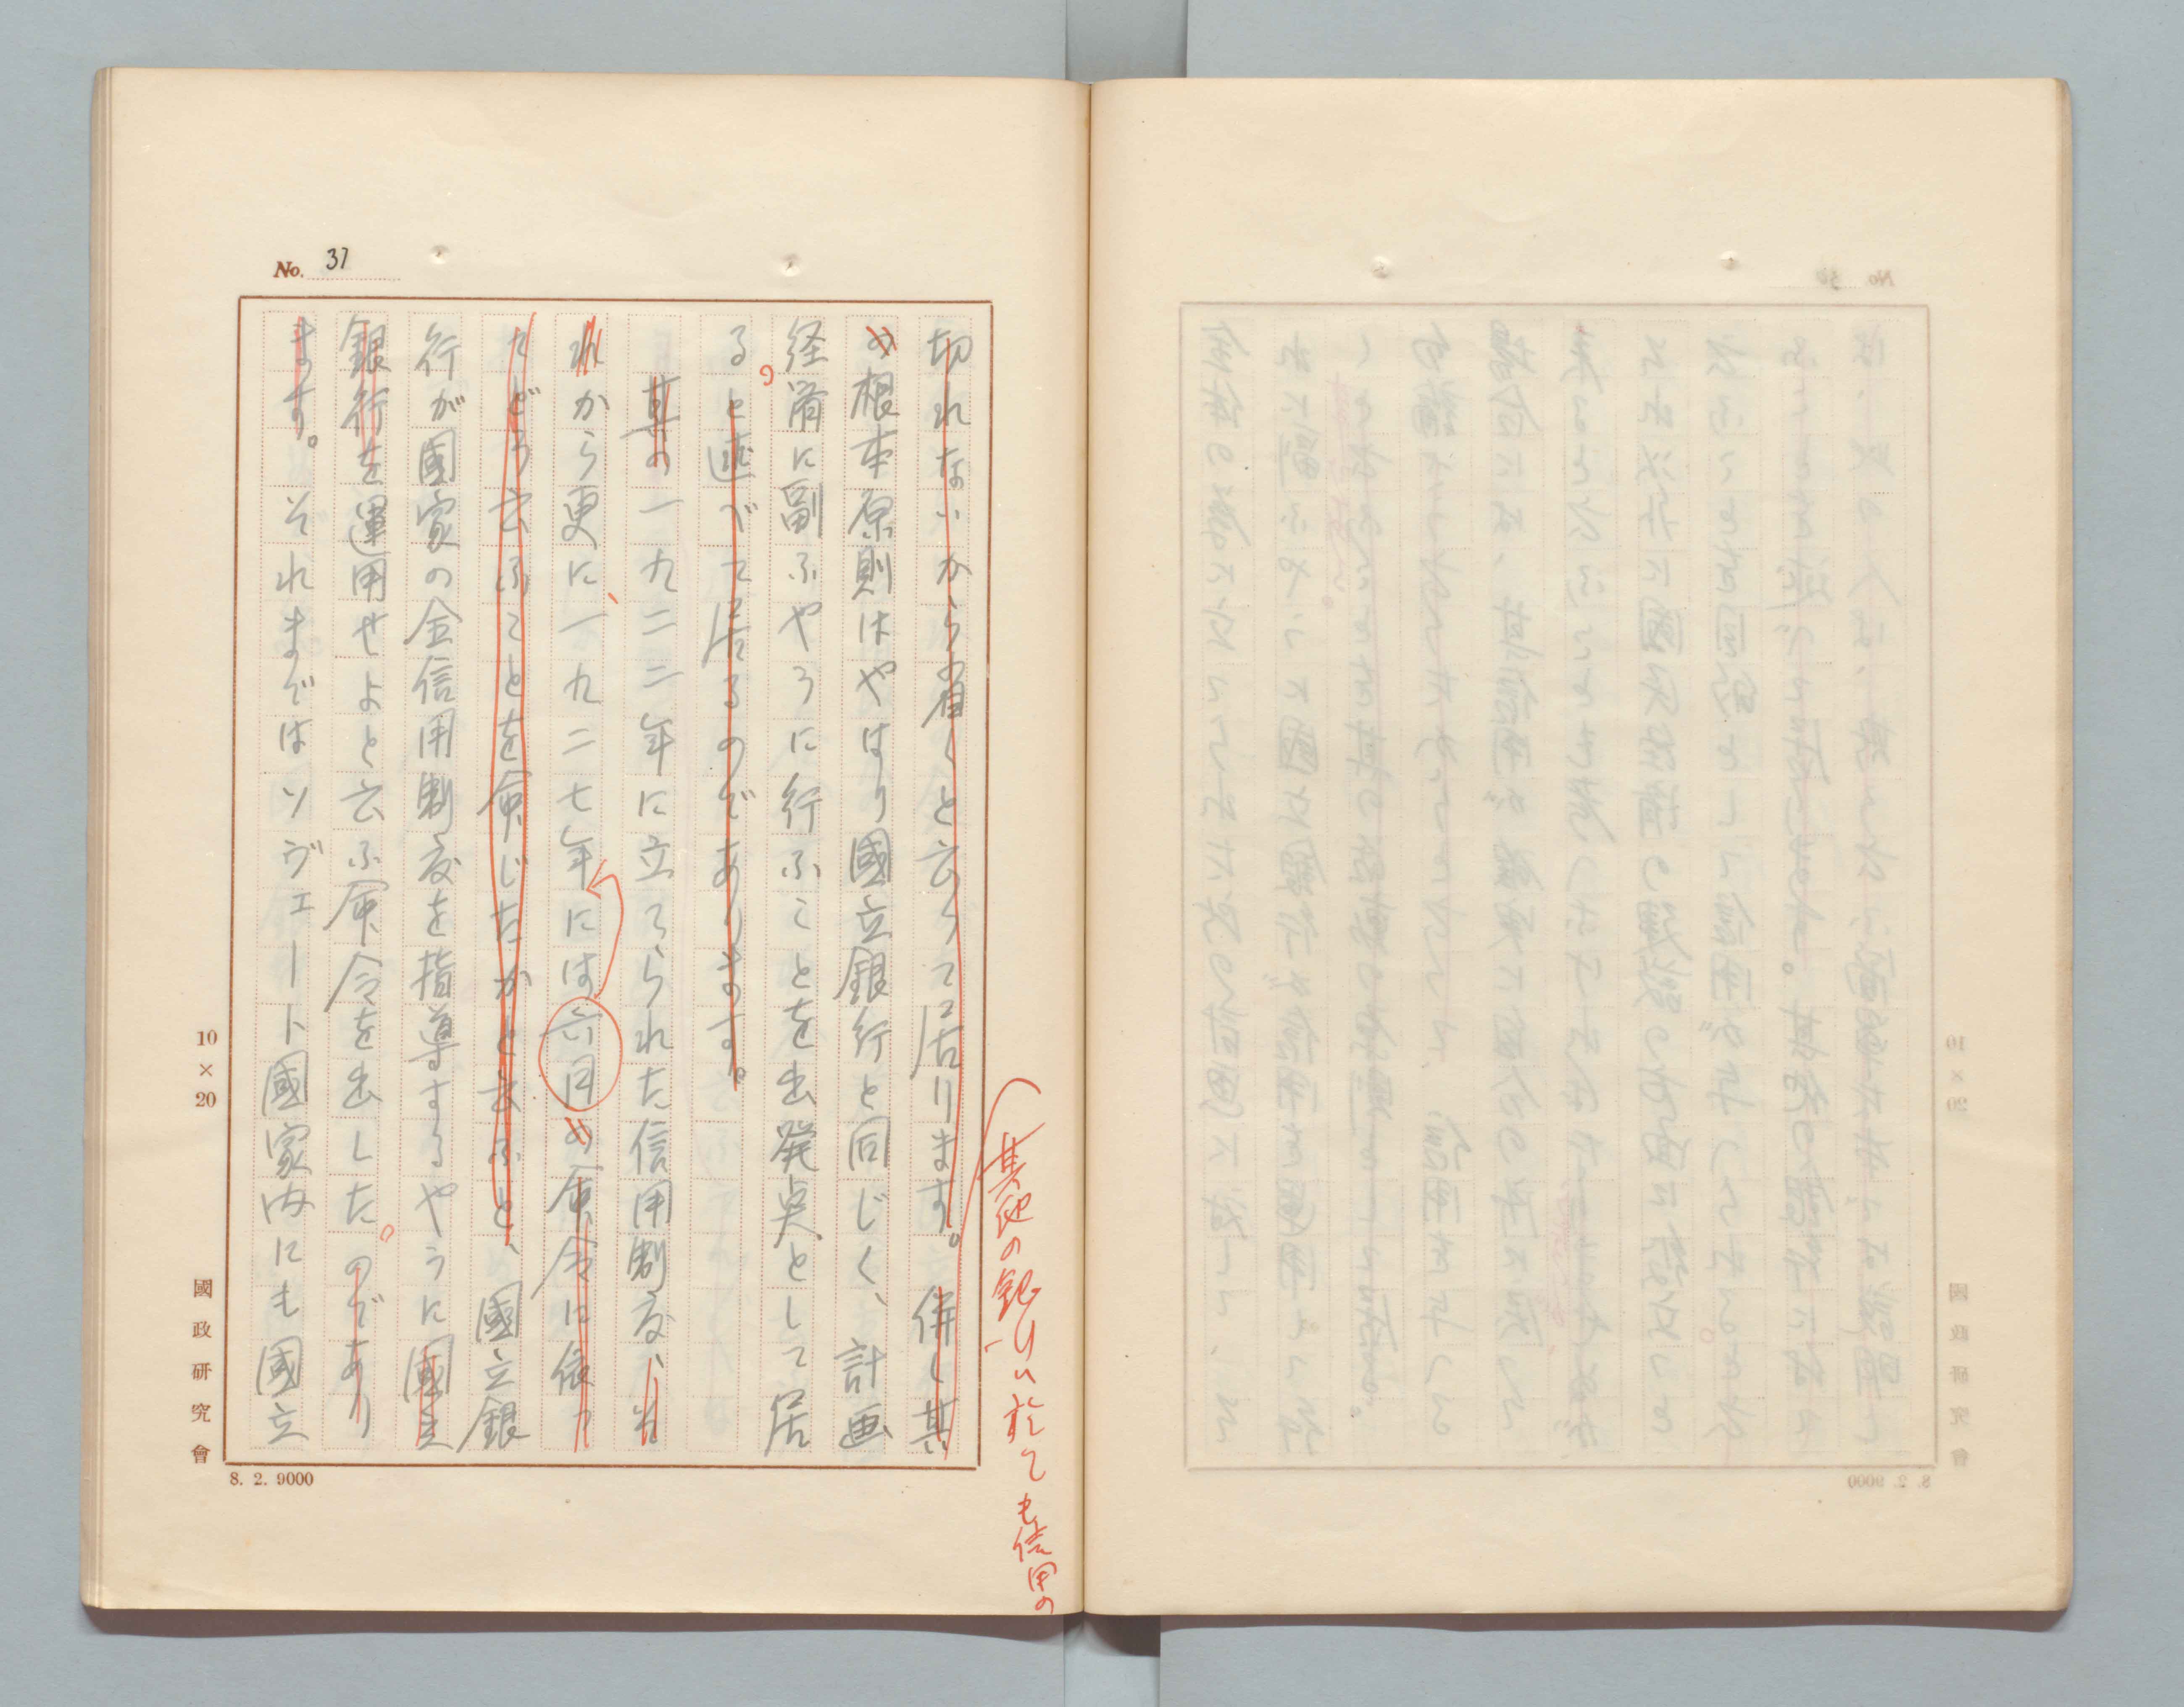 No. 37
切れないから省くと云って居ります。併し其
の根本原則はやはり國立銀行と同じく、計画
経済に副ふやうに行ふことを出発点として居
る。と述べて居るのであります。
其の一九二二年に立てられた信用制度、それ
から更に、一九二七年には六月の命令に依つ
てどう云ふことを命じたかと云ふと、國立銀
行が國家の金信用制度を指導するやうに國立
銀行を運用せよと云ふ命令を出した。のであり
ます。それまではソヴェート國家内にも國立
其他の銀行に於ても信用の
10×20
國政研究會
8. 2. 9000